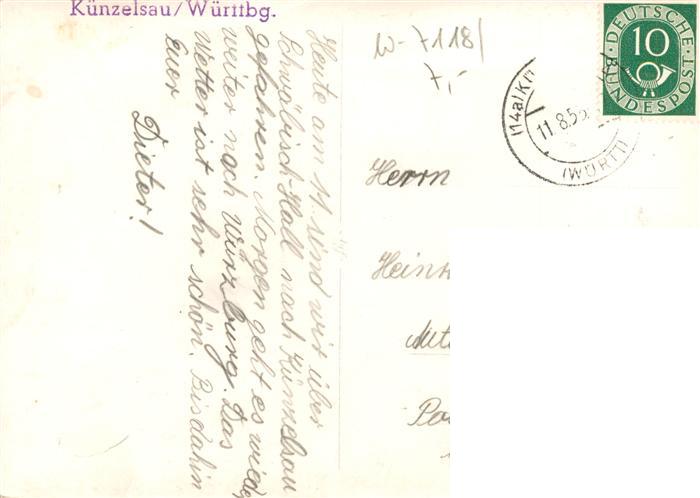 Künzelsau/Württbg.
Heute am 11. sind wir über
Schwäbisch-Hall nach Künzelsau
gefahren. Morgen geht es wieder
weiter nach Würzburg. Das
Wetter ist sehr schön. Bis dahin
Euer
Dieter!
W-7118/
7,-
DEUTSCHE
10
BUNDESPOST
(14a)K
11.8.5
(WÜRTT)
Herrn
Hein